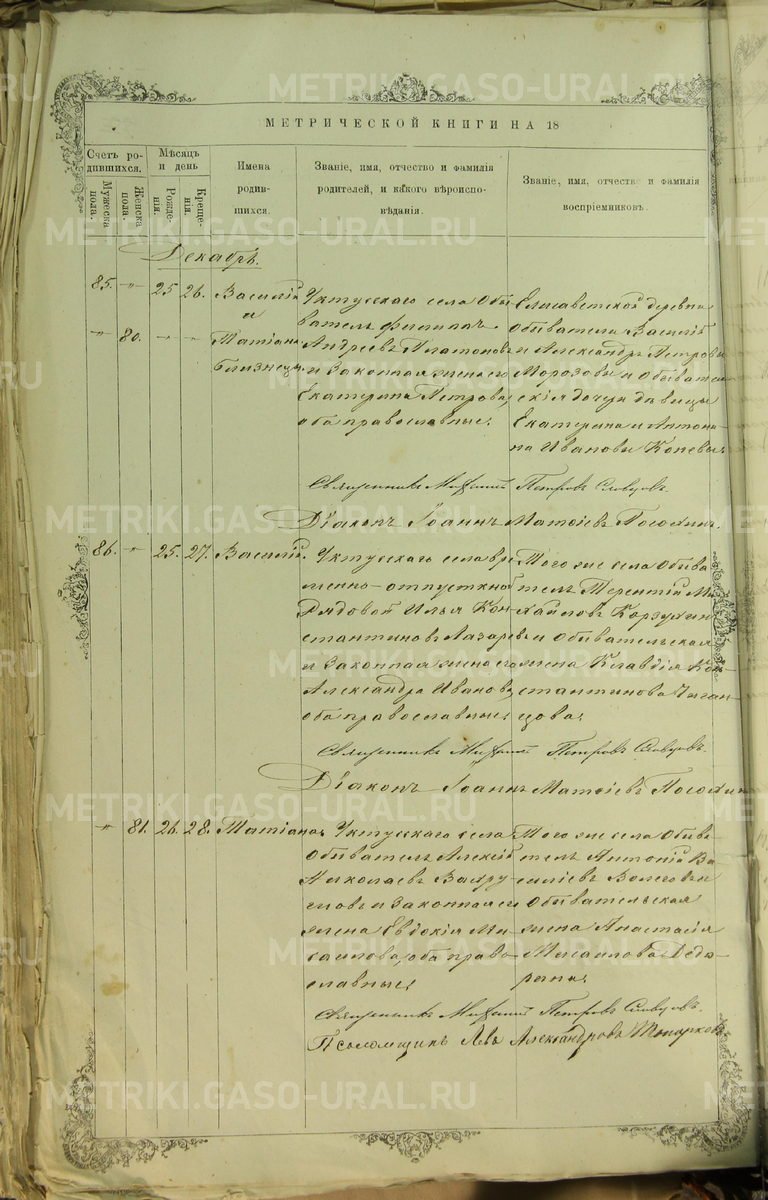 METRIKI.GASO-URAL.RU
МЕТРИЧЕСКОЙ КНИГИ НА 18
Счетъ родившихся.
Мужеска пола.
Женска пола.
Мѣсяцъ и день
Рожденія.
Крещенія.
Имена родившихся.
Званіе, имя, отчество и фамилія родителей, и какого вѣроисповѣданія.
Званіе, имя, отчество и фамилія воспріемниковъ.
Декабрь.
85. -"- 25 26. Василій
и
-"- 80. -"- -"- Татіана
Близнецы.
Уктусскаго села Обы-
ватель Филиппъ
Андреевъ Платоновъ
и законная жена его
Екатерина Петрова,
оба православные.
Елисаветской деревни
Обыватели Василій
и Александръ Петровы
Морозовы и Обыватель-
скія дочери дѣвицы
Екатерина и Антони-
на Ивановы Коневы.
Священникъ Михаилъ Петровъ Словцовъ.
Діаконъ Іоаннъ Матѳіевъ
86. -"- 25. 27. Василій.
Уктусскаго села вре-
менно-отпускной
Рядовой Илья Кон-
стантиновъ Лазаревъ
и законная жена его
Александра Иванова,
оба православные.
Того же села Обыва-
тель Терентій Ми-
хайловъ Корзухинъ
и Обывательская
жена Клавдія Кон-
стантинова Цыган-
цова.
Священникъ Михаилъ Петровъ Словцовъ.
Діаконъ Іоаннъ Матѳіевъ
-"- 81. 26. 28. Татіана.
Уктусскаго села
Обыватель Алексій
Николаевъ Вахру-
шовъ и законная его
жена Евдокія Ми-
хаилова, оба право-
славные.
Того же села Обыва-
тель Антоній Ва-
силіевъ и
Обывательская
жена Анастасія
Михаилова
Священникъ Михаилъ Петровъ Словцовъ.
Псаломщикъ Левъ Александровъ